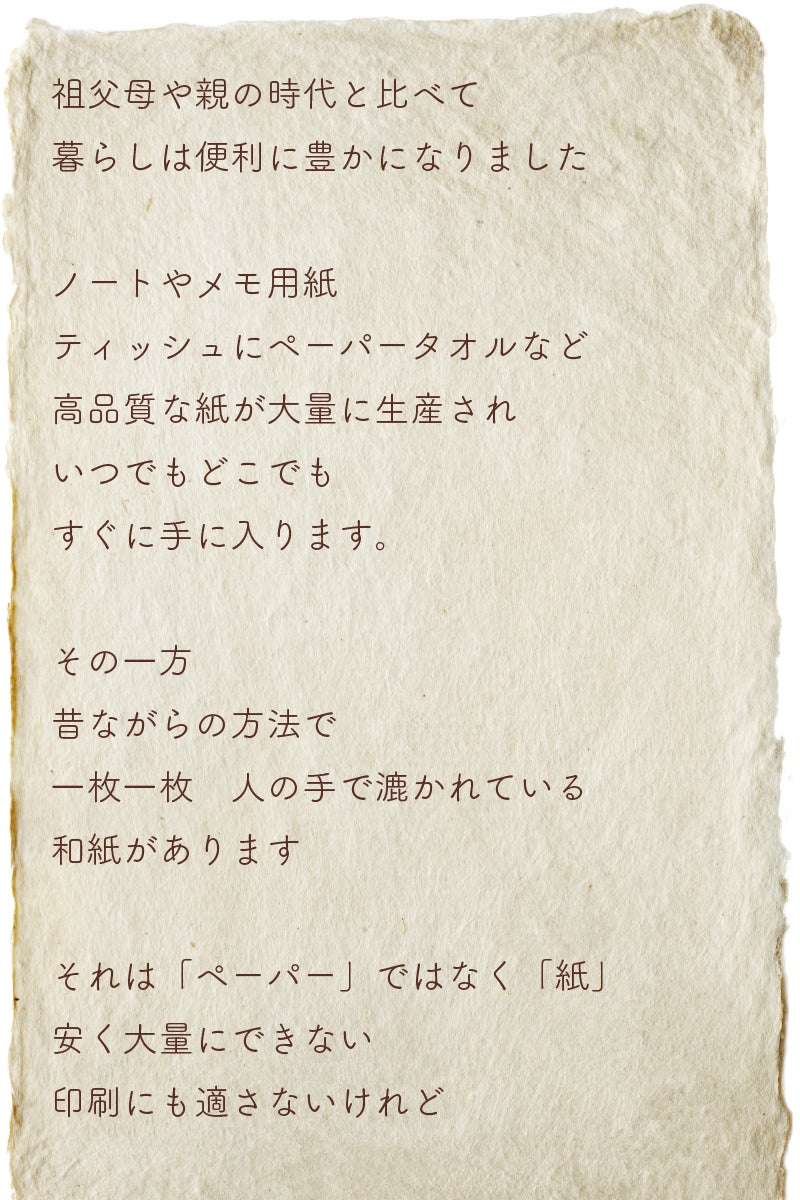 祖父母や親の時代と比べて
暮らしは便利に豊かになりました
ノートやメモ用紙
ティッシュにペーパータオルなど
高品質な紙が大量に生産され
いつでもどこでも
すぐに手に入ります。
その一方
昔ながらの方法で
一枚一枚　人の手で漉かれている
和紙があります
それは「ペーパー」ではなく「紙」
安く大量にできない
印刷にも適さないけれど